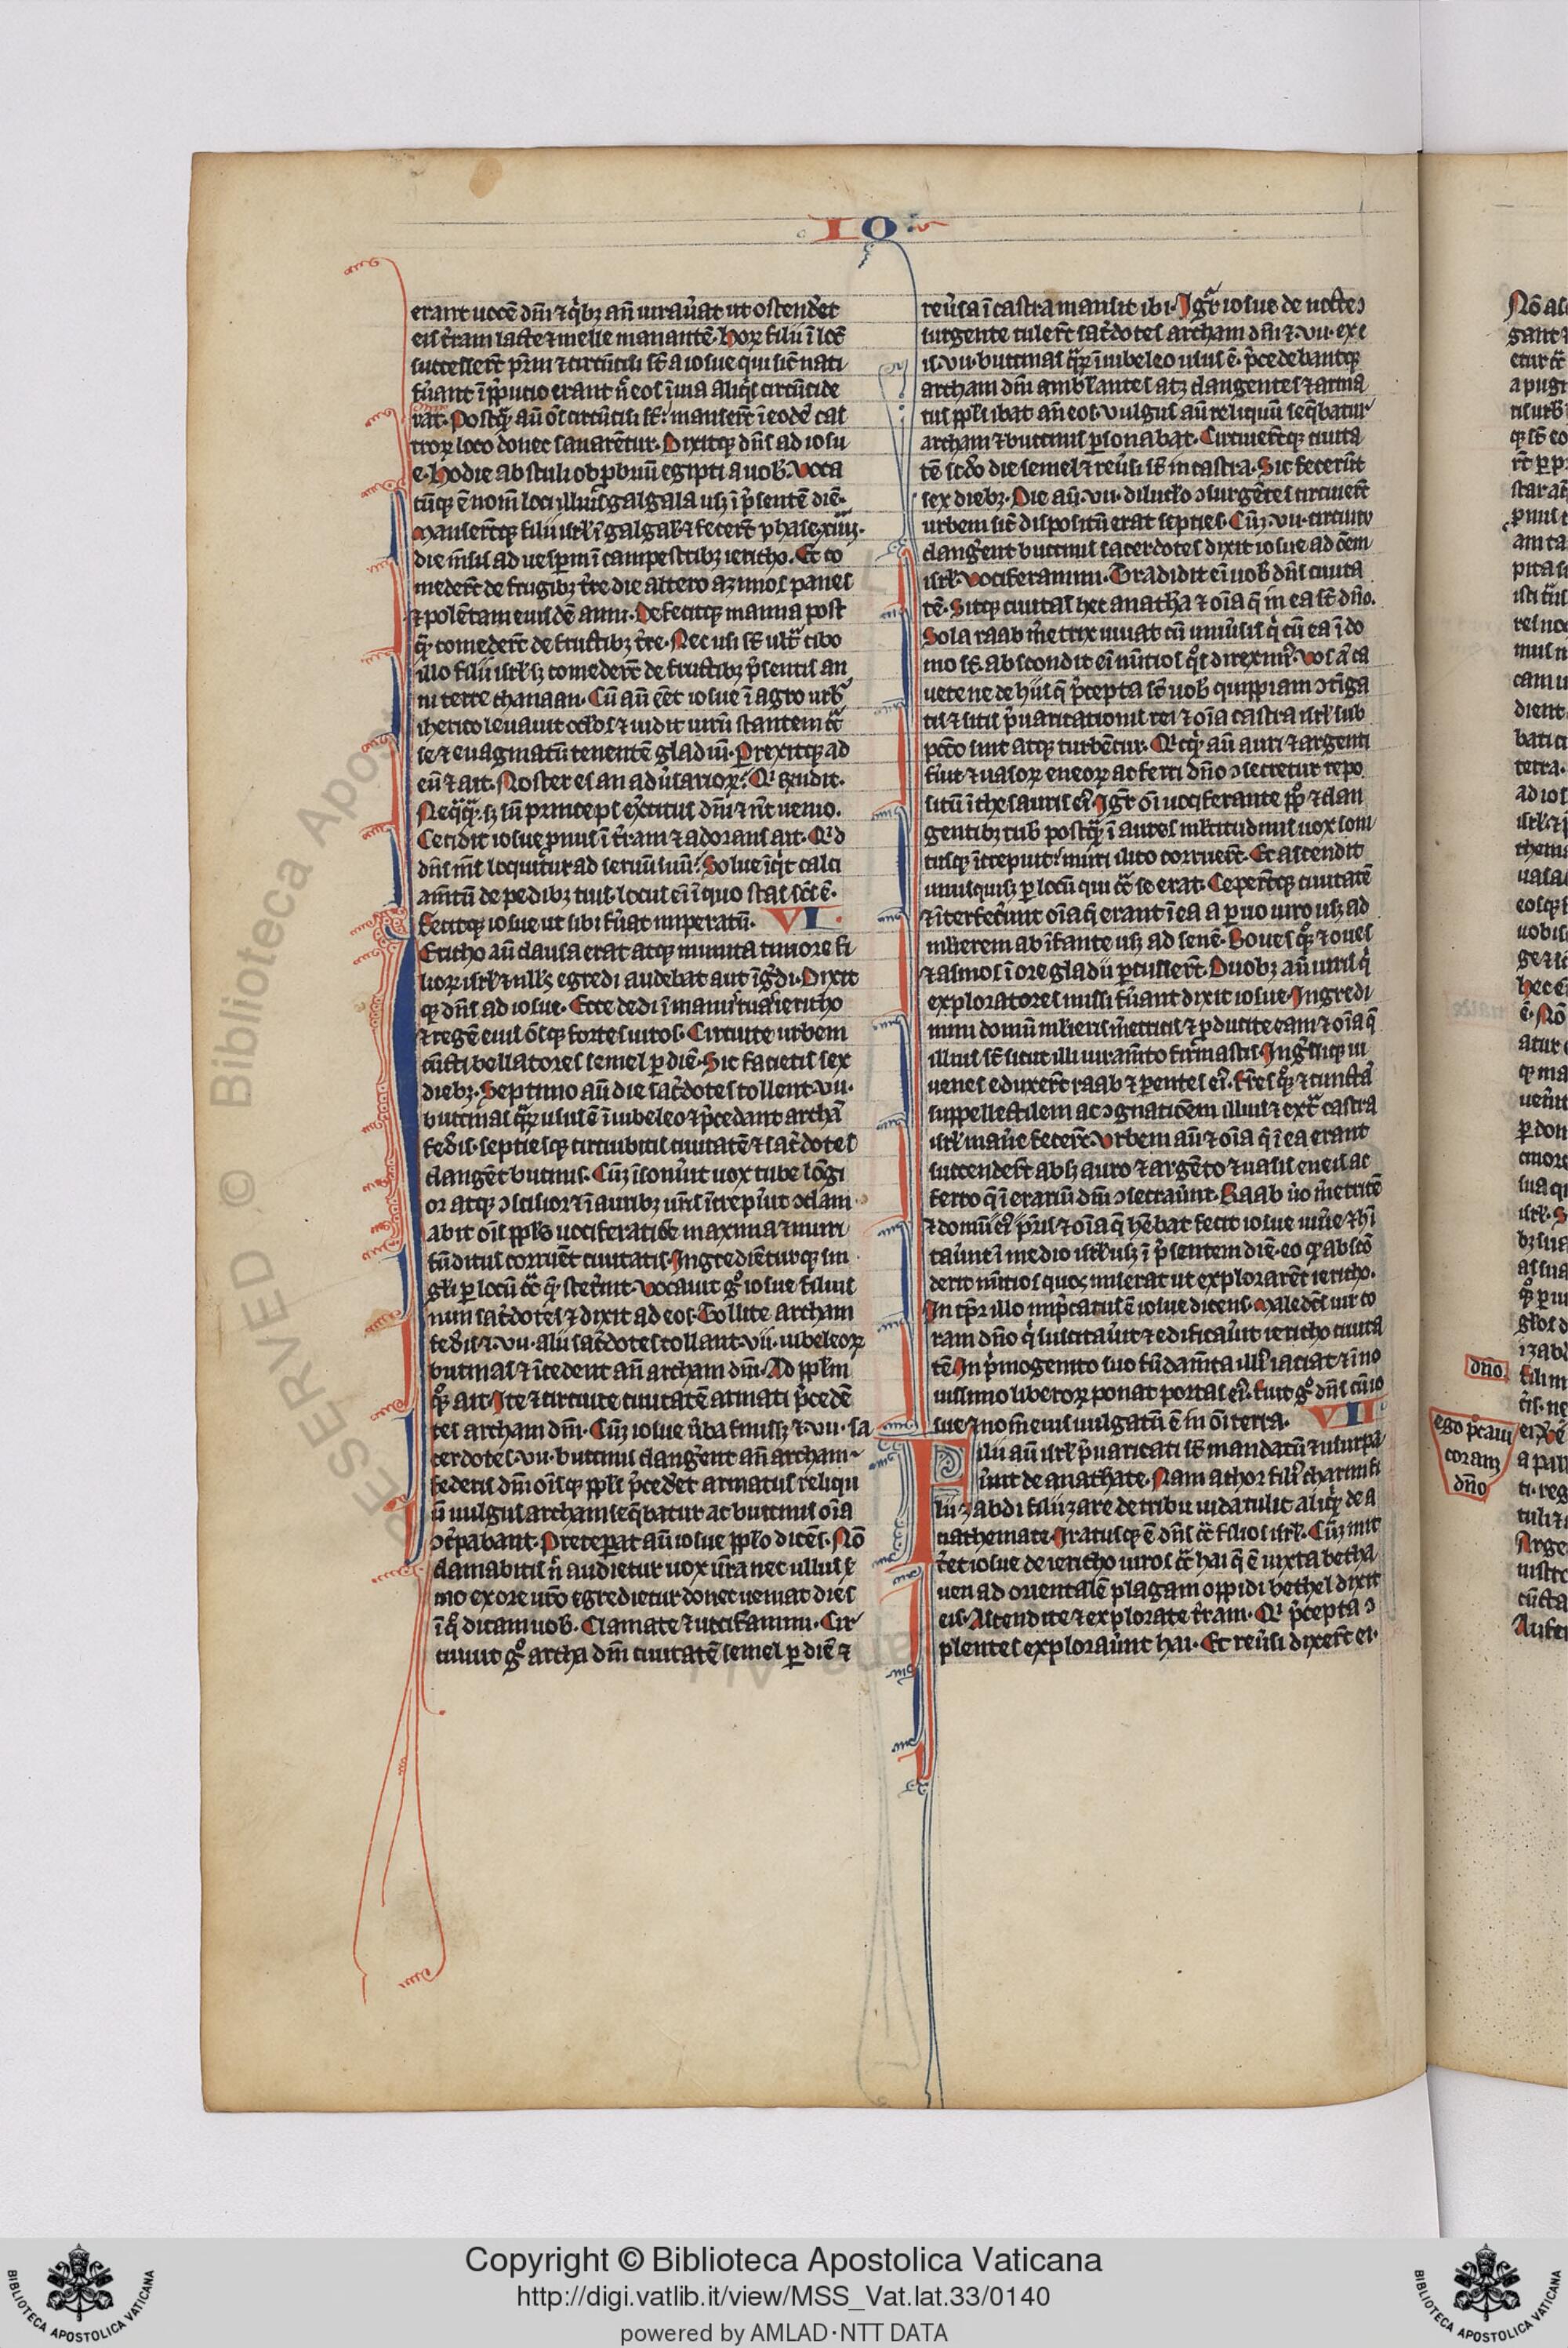 IO
erant uocē dn̄i ⁊ qͥbꝫ an̄ iurau̾at ut ostend̾et
eis t̾ram lacte ⁊ melle manantē. Hoꝝ filii ī locū
successert̄ pr̄m ⁊ circūcisi st̄ a iosue qui sic̄ nati
fu̾ant ī p̾putio erant n̄ eos ī uia aliqͥs circūcide
rat. Postqͣꝫ au̅ oēs circūcisi st̄: mansert̄ ī eodē cas
troꝝ loco donec sanarētur. Dixitqꝫ dn̄s ad iosu
e. Hodie abstuli obp̲buū egipti a uob̄. Voca
tūqꝫ ē nom̄ loci illius galgala usqꝫ ī p̾sentē diē.
Manserūtqꝫ filii isrl̄ ī galgal̄ ⁊ fecert̄ phase xiiii.
die m̄sis ad uesp̲m ī campestribꝫ iericho. Et co
medert̄ de frugibꝫ t̾re die altero azimos panes
⁊ polētam eiusdē anni. Defecitqꝫ manna post
qͣꝫ comedert̄ de fructibꝫ t̾re. Nec usi st̄ ult̾ cibo
illo filii isrl̄ sꝫ comedert̄ de fructibꝫ p̾sentis an
ni terre chanaan. Cū au̅ eēt iosue ī agro urb̾
iherico leuauit oclōs ⁊ uidit uirū stantem ꝯt̾
se ⁊ euaginatū tenentē gladiū. Perrexitqꝫ ad
eū ⁊ ait. Noster es an adu̾sarioꝝ? Qi rn̄dit.
Neqͣqͣꝫ. sꝫ sū princeps ex̾citus dn̄i ⁊ nc̄ uenio.
Cecidit iosue pronus ī t̾ram ⁊ adorans ait. Qid
dn̄s m̄s loquitur ad seruū suū? Solue īqͥt calci
am̄tū de pedibꝫ tuis. locus ei̅ ī quo stas sc̄s ē.
Fecitqꝫ iosue ut sibi fu̾at imperatū. VI.
Iericho au̅ clausa erat atqꝫ munita timore fi
lioꝝ isrl̄ ⁊ nullꝰ egredi audebat aut īgͥdi. Dixit
qꝫ dn̄s ad iosue. Ecce dedi ī manus tuas iericho
⁊ regē eius oēsqꝫ fortes uiros. Circuite urbem
cūcti bellatores semel p̲ diē. Sic facietis sex
diebꝫ. Septimo au̅ die sac̾dotes tollent .vii.
buccinas qͣꝝ usus ē ī iubeleo ⁊ p̾cedant archā
fed̾is. septiesqꝫ circuibitis ciuitatē ⁊ sac̾dotes
clangēt bucinis. Cūqꝫ īsonu̾it uox tube lōgi
or atqꝫ ꝯscisior ⁊ ī auribꝫ ur̄is īcrepu̾it ꝯclam
abit oīs ppl̄s uociferatiōe maxima ⁊ muri
fūditus corruēt ciuitatis. Ingredienturqꝫ sin
gl̄i p̲ locū ꝯt̾ q̄ stet̾int. Vocauit g̊ iosue filius
nun sac̾dotes ⁊ dixit ad eos. Tollite archam
fed̾is ⁊ .vii. alii sac̾dotes tollant .vii. iubeleoꝝ
buccinas ⁊ īcedent an̄ archam dn̄i. Ad ppl̄m
qꝫ ait. Ite ⁊ circuite ciuitatē armati p̾ceden
tes archam dn̄i. Cūqꝫ iosue u̾ba finissꝫ ⁊ .vii. sa
cerdotes .vii. buccinis clang̾ent an̄ archam
federis dn̄i oīsqꝫ ppl̄s p̾ced̾et armatus reliqu
ū uulgus archam seq̄batur ac buccinis oīa
ꝯc̾pabant. Precep̲at au̅ iosue ppl̄o dicēs. Nō
clamabitis n̄ audietur uox ur̄a nec ullus s̾
mo ex ore ur̄o egredietur donec ueniat dies
ī qͦ dicam uob̄. Clamate ⁊ uocifamini. Cir
cuiuit g̊ archa dn̄i ciuitatē semel p̲ diē ⁊
reu̾sa ī castra mansit ibi. Igr̄ iosue de nocte
surgente tulert̄ sac̾dotes archam dn̄i ⁊ .vii. ex e
is .vii. buccinas qͣꝝ ī iubeleo usus ē. p̾cedebantqꝫ
archam dn̄i amblantes atqꝫ clangentes ⁊ arma
tus ppl̄s ibat an̄ eos. Vulgus au̅ reliquū seq̄batur
archam ⁊ buccinis p̲sonabat. Circuiertqꝫ ciuita
tē sc̄do die semel ⁊ reu̾si st̄ in castra. Sic fecerūt
sex diebꝫ. Die au̅ .vii. dilucl̄o ꝯsurgētes circuiert̄
urbem sic̄ dispositū erat septies. Cūqꝫ .vii. circuitu
clang̾ent buccinis sacerdotes dixit iosue ad oēm
isrl̄. Vociferamini. Tradidit ei̅ uob̄ dn̄s ciuita
tē. Sitqꝫ ciuitas hec anathā ⁊ oīa q̄ in ea st̄ dn̄o.
Sola raab m̾etrix uiuat cū uniu̾sis qͥ cū ea ī do
mo st̄. abscondit ei̅ nūtios qͦs direximꝰ. Vos aū ca
uete ne de hiis q̄ p̾cepta st̄ uob̄ quippiam ꝯtīga
tis ⁊ sitis p̾uaricationis rei ⁊ oīa castra isrl̄ sub
pcc̄o sint atqꝫ turbētur. Qicqͥd au̅ auri ⁊ argenti
fu̾it ⁊ uasoꝝ eneoꝝ ac ferri dn̄o ꝯsecretur repo
situ ī thesauris eiꝰ. Igr̄ oī uociferante pplo̅ ⁊ clan
gentibꝫ tub̄ postqͣꝫ ī aures ml̄titudinis uox soni
tusqꝫ īcrepuit: muri ilico corruert̄. Et ascendit
unusquisqꝫ p̲ locū qui ꝯt̾ se erat. Ceperūtqꝫ ciuitatē
⁊ īterfec̾unt oīa q̄ erant ī ea a p̲uo uiro usqꝫ ad
ml̄ierem ab īfante usqꝫ ad senē. Boues qꝫ ⁊ oues
⁊ asinos ī ore gladii p̲cussert̄. Duobꝫ au̅ uiris qͥ
exploratores missi fu̾ant dixit iosue. Ingredi
mini domū ml̄ieris m̾etricis ⁊ p̲ducite eam ⁊ oīa q̄
illius st̄ sicut illi iuram̄to firmastis. Ingͥssiqꝫ iu
uenes eduxert̄ raab ⁊ parentes eiꝰ. fr̄es qꝫ ⁊ cuncta
suppellectilem ac ꝯgnatiōem illius ⁊ ext̾ castra
isrl̄ man̾e fecert̄. Vrbem au̅ ⁊ oīa q̄ ī ea erant
succendert̄ absqꝫ auro ⁊ argēto ⁊ uasis eneis ac
ferro q̄ ī erariū dn̄i ꝯsecrau̾nt. Raab u̾o m̾etricē
⁊ domū eiꝰ pr̄is ⁊ oīa q̄ hēbat fecit iosue uiu̾e ⁊ hī
tau̾nt ī medio isrl̄ usqꝫ ī p̾sentem diē. eo qͥ absco̅
derit nūtios quos miserat ut explorarēt iericho.
In tp̲r illo imp̾catus ē iosue dicens. Maledc̄s uir co
ram dn̄o qͥ suscitau̾it ⁊ edificau̾it iericho ciuita
tē. In p̾mogenito suo fūdam̄ta illiꝰ iaciat ⁊ ī no
uissimo liberoꝝ ponat portas eiꝰ. Fuit g̊ dn̄s cū io
sue ⁊ nom̄ eius uulgatū ē in oī terra. VII
Filii au̅ isrl̄ p̾uaricati st̄ mandatū ⁊ usurpa
u̾nt de anathate. Nam achor filiꝰ charmi fi
lii zabdi filii zare de tribu iuda tulit aliqͥd de a
nathemate. Iratusqꝫ ē dn̄s ꝯt̾ filios isrl̄. Cūqꝫ mit
t̾et iosue de iericho uiros ꝯt̾ hai q̄ ē iuxta betha
uen ad orientalē plagam oppidi bethel dixit
eis. Ascendite ⁊ explorate t̾ram. Qi p̾cepta ꝯ
plentes explorau̾nt hai. Et reu̾si dixert̄ ei.
dn̄o
ego pc̄caui
coram
dn̄o
Copyright © Biblioteca Apostolica Vaticana
http://digi.vatlib.it/view/MSS_Vat.lat.33/0140
powered by AMLAD·NTT DATA
BIBLIOTECA APOSTOLICA VATICANA
BIBLIOTECA APOSTOLICA VATICANA